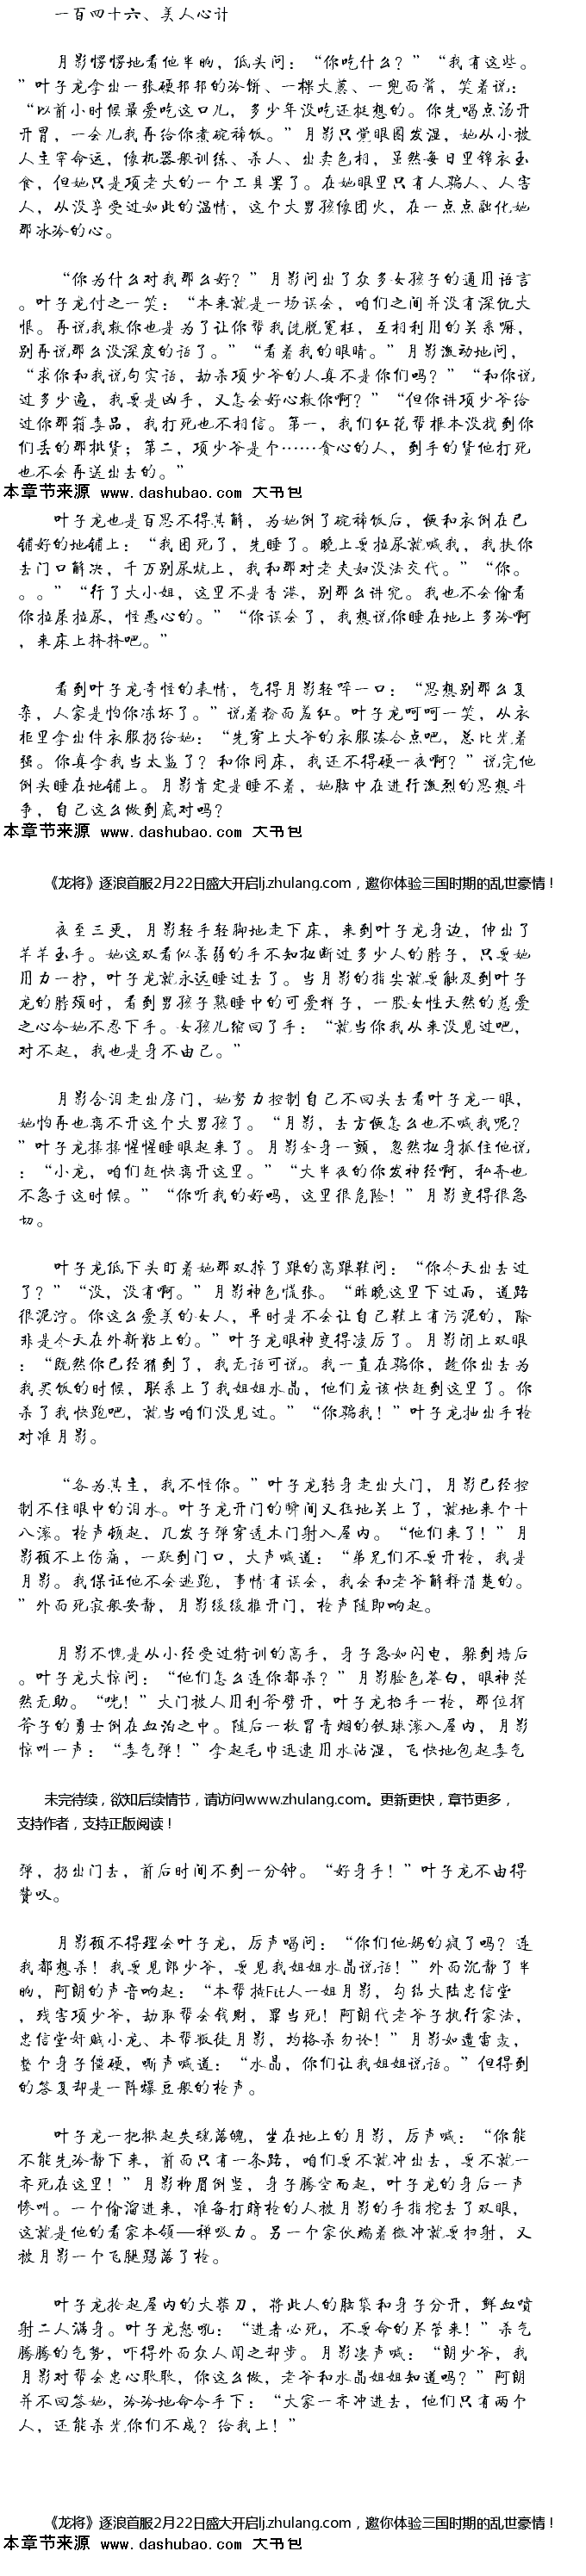 一百四十六、美人心计
月影愣愣地看他半晌，低头问：“你吃什么？”“我有这些。
”叶子龙拿出一张硬邦邦的冷饼、一棵大葱、一兜面酱，笑着说：
“以前小时候最爱吃这口儿，多少年没吃还挺想的。你先喝点汤开
开胃，一会儿我再给你煮碗稀饭。”月影只觉眼圈发湿，她从小被
人主宰命运，像机器般训练、杀人、出卖色相，虽然每日里锦衣玉
食，但她只是项老大的一个工具罢了。在她眼里只有人骗人、人害
人，从没享受过如此的温情，这个大男孩像团火，在一点点融化她
那冰冷的心。
“你为什么对我那么好？”月影问出了众多女孩子的通用语言
。叶子龙付之一笑：“本来就是一场误会，咱们之间并没有深仇大
恨。再说我救你也是为了让你帮我洗脱冤枉，互相利用的关系嘛，
别再说那么没深度的话了。”“看着我的眼睛。”月影激动地问，
“求你和我说句实话，劫杀项少爷的人真不是你们吗？”“和你说
过多少遍，我要是凶手，又怎会好心救你啊？”“但你讲项少爷给
过你那箱毒品，我打死也不相信。第一，我们红花帮根本没找到你
们丢的那批货；第二，项少爷是个……贪心的人，到手的货他打死
也不会再送出去的。”
本章节来源 www.dashubao.com 大书包
叶子龙也是百思不得其解，为她倒了碗稀饭后，便和衣倒在已
铺好的地铺上：“我困死了，先睡了。晚上要拉尿就喊我，我扶你
去门口解决，千万别尿炕上，我和那对老夫妇没法交代。”“你。
。。”“行了大小姐，这里不是香港，别那么讲究。我也不会偷看
你拉屎拉尿，怪恶心的。”“你误会了，我想说你睡在地上多冷啊
，来床上挤挤吧。”
看到叶子龙奇怪的表情，气得月影轻啐一口：“思想别那么复
杂，人家是怕你冻坏了。”说着粉面羞红。叶子龙呵呵一笑，从衣
柜里拿出件衣服扔给她：“先穿上大爷的衣服凑合点吧，总比光着
强。你真拿我当太监了？和你同床，我还不得硬一夜啊？”说完他
倒头睡在地铺上。月影肯定是睡不着，她脑中在进行激烈的思想斗
争，自己这么做到底对吗？
本章节来源 www.dashubao.com 大书包
《龙将》逐浪首服2月22日盛大开启lj.zhulang.com，邀你体验三国时期的乱世豪情！
夜至三更，月影轻手轻脚地走下床，来到叶子龙身边，伸出了
芊芊玉手。她这双看似柔弱的手不知扭断过多少人的脖子，只要她
用力一拧，叶子龙就永远睡过去了。当月影的指尖就要触及到叶子
龙的脖颈时，看到男孩子熟睡中的可爱样子，一股女性天然的慈爱
之心令她不忍下手。女孩儿缩回了手：“就当你我从来没见过吧，
对不起，我也是身不由己。”
月影含泪走出房门，她努力控制自己不回头去看叶子龙一眼，
她怕再也离不开这个大男孩了。“月影，去方便怎么也不喊我呢？
”叶子龙揉揉惺惺睡眼起来了。月影全身一颤，忽然扭身抓住他说
：“小龙，咱们赶快离开这里。”“大半夜的你发神经啊，私奔也
不急于这时候。”“你听我的好吗，这里很危险！”月影变得很急
切。
叶子龙低下头盯着她那双掉了跟的高跟鞋问：“你今天出去过
了？”“没，没有啊。”月影神色慌张。“昨晚这里下过雨，道路
很泥泞。你这么爱美的女人，平时是不会让自己鞋上有污泥的，除
非是今天在外新粘上的。”叶子龙眼神变得凌厉了。月影闭上双眼
：“既然你已经猜到了，我无话可说。我一直在骗你，趁你出去为
我买饭的时候，联系上了我姐姐水晶，他们应该快赶到这里了。你
杀了我快跑吧，就当咱们没见过。”“你骗我！”叶子龙抽出手枪
对准月影。
“各为其主，我不怪你。”叶子龙转身走出大门，月影已经控
制不住眼中的泪水。叶子龙开门的瞬间又猛地关上了，就地来个十
八滚。枪声顿起，几发子弹穿透木门射入屋内。“他们来了！”月
影顾不上伤痛，一跃到门口，大声喊道：“弟兄们不要开枪，我是
月影。我保证他不会逃跑，事情有误会，我会和老爷解释清楚的。
”外面死寂般安静，月影缓缓推开门，枪声随即响起。
月影不愧是从小经受过特训的高手，身子急如闪电，躲到墙后
。叶子龙大惊问：“他们怎么连你都杀？”月影脸色苍白，眼神茫
然无助。“咣！”大门被人用利斧劈开，叶子龙抬手一枪，那位挥
斧子的勇士倒在血泊之中。随后一枚冒青烟的铁球滚入屋内，月影
惊叫一声：“毒气弹！”拿起毛巾迅速用水沾湿，飞快地包起毒气
未完待续，欲知后续情节，请访问www.zhulang.com。更新更快，章节更多，
支持作者，支持正版阅读！
弹，扔出门去，前后时间不到一分钟。“好身手！”叶子龙不由得
赞叹。
月影顾不得理会叶子龙，厉声喝问：“你们他妈的疯了吗？连
我都想杀！我要见郎少爷，要见我姐姐水晶说话！”外面沉静了半
晌，阿朗的声音响起：“本帮掎Fit人一姐月影，勾结大陆忠信堂
，残害项少爷，劫取帮会钱财，罪当死！阿朗代老爷子执行家法，
忠信堂奸贼小龙、本帮叛徒月影，均格杀勿论！”月影如遭雷击，
整个身子僵硬，嘶声喊道：“水晶，你们让我姐姐说话。”但得到
的答复却是一阵爆豆般的枪声。
叶子龙一把揪起失魂落魄，坐在地上的月影，厉声喊：“你能
不能先冷静下来，前面只有一条路，咱们要不就冲出去，要不就一
齐死在这里！”月影柳眉倒竖，身子腾空而起，叶子龙的身后一声
惨叫。一个偷溜进来，准备打暗枪的人被月影的手指挖去了双眼，
这就是他的看家本领—禅吸力。另一个家伙端着微冲就要扫射，又
被月影一个飞腿踢落了枪。
叶子龙抢起屋内的大柴刀，将此人的脑袋和身子分开，鲜血喷
射二人满身。叶子龙怒吼：“进者必死，不要命的尽管来！”杀气
腾腾的气势，吓得外面众人闻之却步。月影凄声喊：“朗少爷，我
月影对帮会忠心耿耿，你这么做，老爷和水晶姐姐知道吗？”阿朗
并不回答她，冷冷地命令手下：“大家一齐冲进去，他们只有两个
人，还能杀光你们不成？给我上！”
《龙将》逐浪首服2月22日盛大开启lj.zhulang.com，邀你体验三国时期的乱世豪情！
本章节来源 www.dashubao.com 大书包